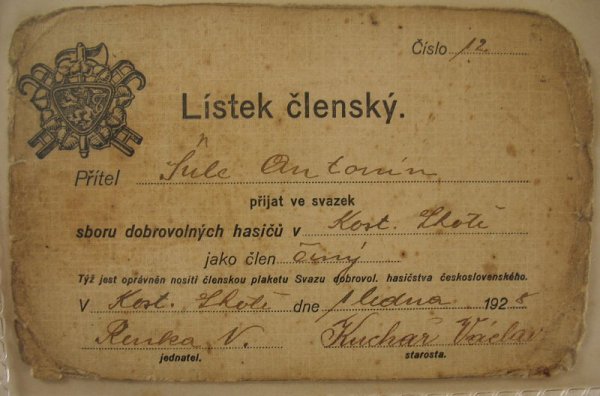 Číslo 12.
Lístek členský.
Přítel Šulc Antonín
přijat ve svazek
sboru dobrovolných hasičů v Kost. Lhotě
jako člen činný
Týž jest oprávněn nositi členskou plaketu Svazu dobrovol. hasičstva československého.
V Kost. Lhotě dne 1 ledna 1928
V. Kuchař Václav
jednatel. starosta.